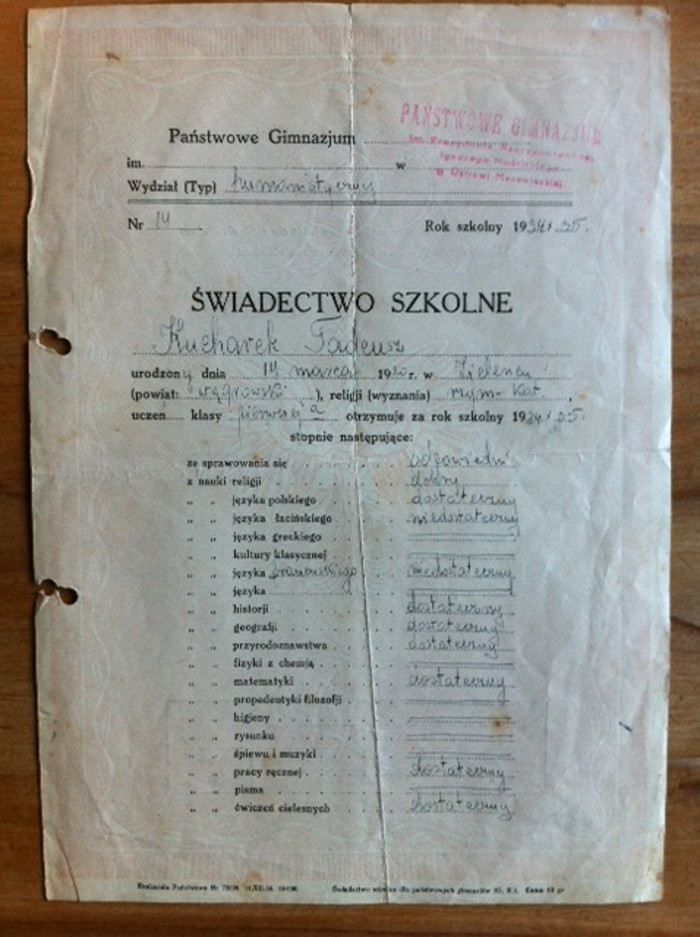 Państwowe Gimnazjum PAŃSTWOWE GIMNAZJUM
im. Prezydenta Rzeczypospolitej
im. w Ignacego Mościckiego
w Ostrowi Mazowieckiej
Wydział (Typ) humanistyczny
Nr 14 Rok szkolny 1934/35.
ŚWIADECTWO SZKOLNE
Kucharek Tadeusz
urodzony dnia 14 marca 1920 r. w
(powiat: węgrowski), religji (wyznania) rzym-kat.,
uczeń klasy pierwszej a otrzymuje za rok szkolny 1934/35
stopnie następujące:
ze sprawowania się odpowiedni
z nauki religji dobry
„ „ języka polskiego dostateczny
„ „ języka łacińskiego niedostateczny
„ „ języka greckiego
„ „ kultury klasycznej
„ „ języka francuskiego niedostateczny
„ „ języka
„ „ historji dostateczny
„ „ geografji dostateczny
„ „ przyrodoznawstwa dostateczny
„ „ fizyki z chemją
„ „ matematyki dostateczny
„ „ propedeutyki filozofji
„ „ higjeny
„ „ rysunku
„ „ śpiewu i muzyki
„ „ pracy ręcznej dostateczny
„ „ pisma
„ „ ćwiczeń cielesnych dostateczny
Drukarnia Państwowa Nr Świadectwo szkolne dla państwowych gimnazjów Cena 10 gr